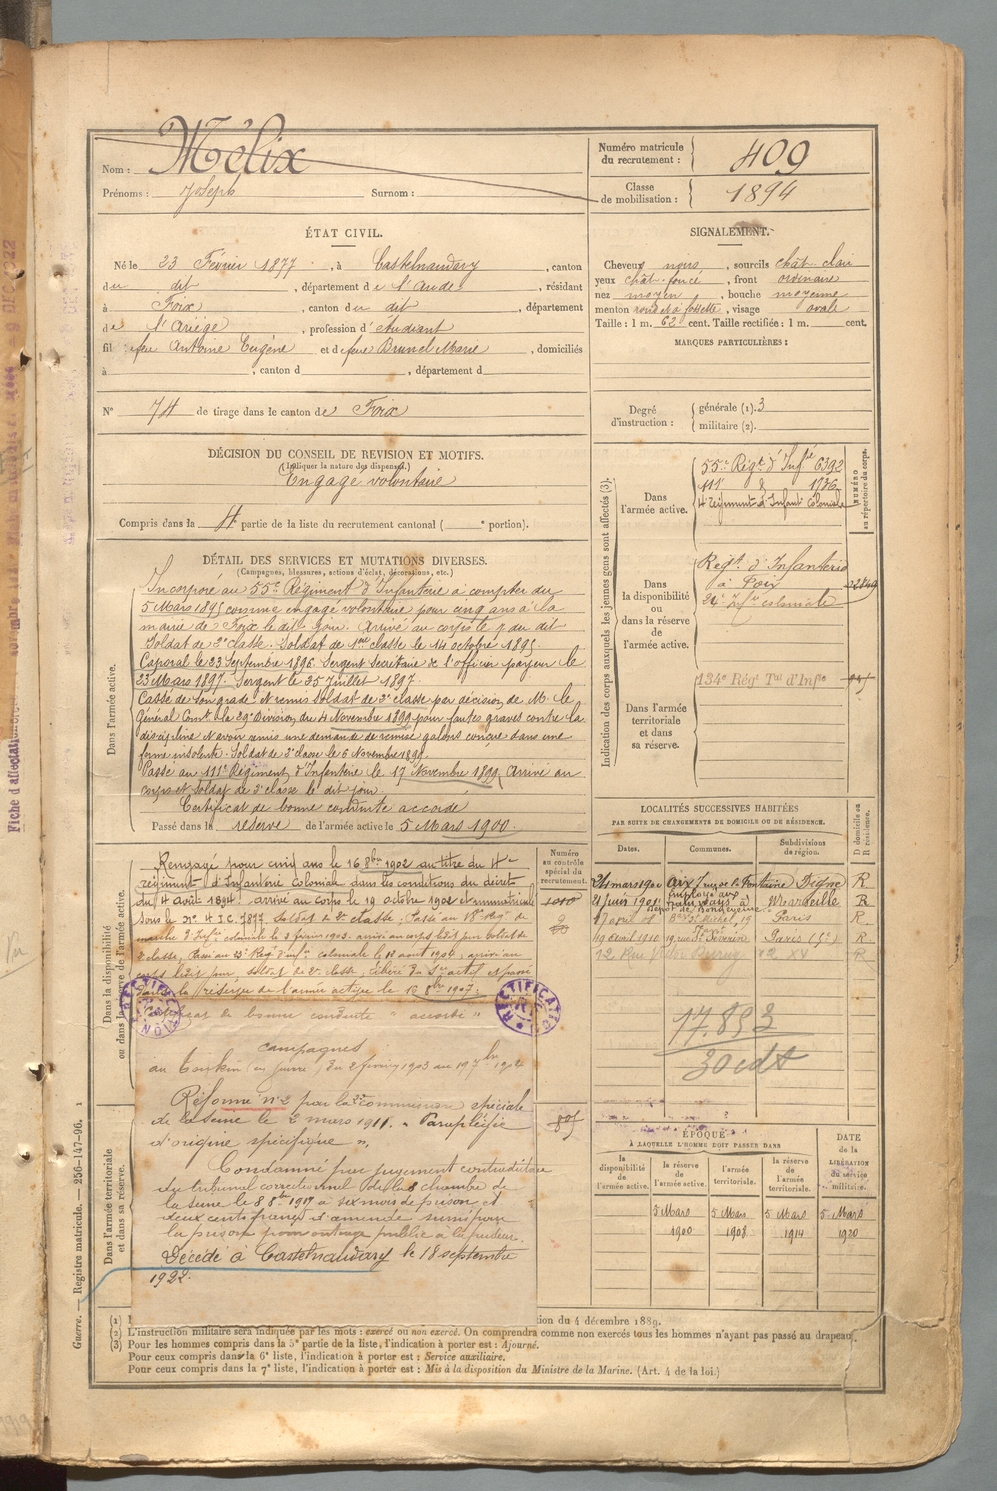 Nom : Mélix
Prénoms : Joseph Surnom :
Numéro matricule du recrutement : 409
Classe de mobilisation : 1894
ÉTAT CIVIL.
Né le 23 Février 1877, à Castelnaudary, canton
du dit, département de l'Aude, résidant
à Foix, canton du dit, département
de l'Ariège, profession d'étudiant
fils de feu Antoine Eugène et de feue Brunel Marie, domiciliés
à , canton d , département d
N° 74 de tirage dans le canton de Foix
SIGNALEMENT.
Cheveux noirs, sourcils chât. clair
yeux chât. foncé, front ordinaire
nez moyen, bouche moyenne
menton rond et à fossette, visage ovale
Taille : 1 m. 62 cent. Taille rectifiée : 1 m. cent.
MARQUES PARTICULIÈRES :
Degré d'instruction : générale (1). 3
militaire (2).
DÉCISION DU CONSEIL DE REVISION ET MOTIFS.
(Indiquer la nature des dispenses.)
Engagé volontaire
Compris dans la 4e partie de la liste du recrutement cantonal ( e portion).
DÉTAIL DES SERVICES ET MUTATIONS DIVERSES.
(Campagnes, blessures, actions d'éclat, décorations, etc.)
Dans l'armée active.
Incorporé au 55e Régiment d'Infanterie à compter du
5 Mars 1895 comme engagé volontaire pour cinq ans à la
mairie de Foix le dit jour. Arrivé au corps le 7 du dit
Soldat de 2e classe. Soldat de 1ere classe le 14 octobre 1895.
Caporal le 23 Septembre 1896. Sergent Secrétaire de l'officier payeur le
23 Mars 1897. Sergent le 25 Juillet 1897.
Cassé de son grade et remis soldat de 2e classe par décision de M. le
Général Comt la 29e Division du 4 Novembre 1899 pour fautes graves contre la
discipline et avoir émis une demande de remise galons conçue dans une
forme insolente. Soldat de 2e classe le 6 Novembre 1899.
Passé au 111e Régiment d'Infanterie le 17 Novembre 1899. Arrivé au
corps et Soldat de 2e classe le dit jour.
Certificat de bonne conduite accordé
Passé dans la réserve de l'armée active le 5 Mars 1900.
Indication des corps auxquels les jeunes gens sont affectés (3).
NUMÉRO au répertoire du corps.
Dans l'armée active.
55e Régt d'Infie 6392
111e d° 1736
4e Régiment d'Infant Coloniale
Dans la disponibilité ou dans la réserve de l'armée active.
Régt d'Infanterie
à Foix
Dans l'armée territoriale et dans sa réserve.
134e Régt Tal d'Infie
LOCALITÉS SUCCESSIVES HABITÉES
PAR SUITE DE CHANGEMENTS DE DOMICILE OU DE RÉSIDENCE.
Dates. Communes. Subdivisions de région. D domicile ou R résidence.
Aix 7 rue de la Fontaine Digne R
21 juin 1901 employé aux tramways à Marseille R
Paris R.
19 rue St Séverin Paris (5e) R.
R
17.893
30 cdt
Dans la disponibilité ou dans la réserve de l'armée active.
Numéro au contrôle spécial du recrutement.
Rengagé pour cinq ans le 16 8bre 1902 au titre du 4e
régiment d'Infanterie Coloniale dans les conditions du décret
du 4 août 1894. arrivé au corps le 19 octobre 1902 et immatriculé
sous le n° 4 I.C. 7877 Soldat de 2e classe. Passé au 18e Régt de
marche d'Infie coloniale le 2 février 1903. arrivé au corps le dit jour soldat de
2e classe. Passé au 23e Régt d'infie coloniale le 11 août 1904. arrivé au
corps le dit jour soldat de 2e classe. libéré du Sce actif et passé
dans la réserve de l'armée active le 16 8bre 1907.
Certificat de bonne conduite "accordé"
RECTIFICATION
RECTIFICATION
Campagnes
au Tonkin (en guerre) du 2 février 1903 au
Dans l'armée territoriale et dans sa réserve.
Réforme n° 2 par la 2e commission spéciale
de la Seine le 2 mars 1911. "Paraplégie
d'origine spécifique".
Condamné par jugement contradictoire
du tribunal correctionnel de la 8 chambre de
la Seine le 8 8bre 1917 à six mois de prison et
deux cents francs d'amende
la prison pour outrage public à la pudeur.
Décédé à Castelnaudary le 18 septembre
1922.
ÉPOQUE
À LAQUELLE L'HOMME DOIT PASSER DANS
la disponibilité de l'armée active. la réserve de l'armée active. l'armée territoriale. la réserve de l'armée territoriale.
DATE de la LIBÉRATION du service militaire.
5 Mars 1900 5 Mars 1908 5 Mars 1914 5 Mars 1920
(1) tion du 4 décembre 1889.
(2) L'instruction militaire sera indiquée par les mots : exercé ou non exercé. On comprendra comme non exercés tous les hommes n'ayant pas passé au drapeau.
(3) Pour les hommes compris dans la 5e partie de la liste, l'indication à porter est : Ajourné.
Pour ceux compris dans la 6e liste, l'indication à porter est : Service auxiliaire.
Pour ceux compris dans la 7e liste, l'indication à porter est : Mis à la disposition du Ministre de la Marine. (Art. 4 de la loi.)
Guerre. — Registre matricule. — 256-147-96.